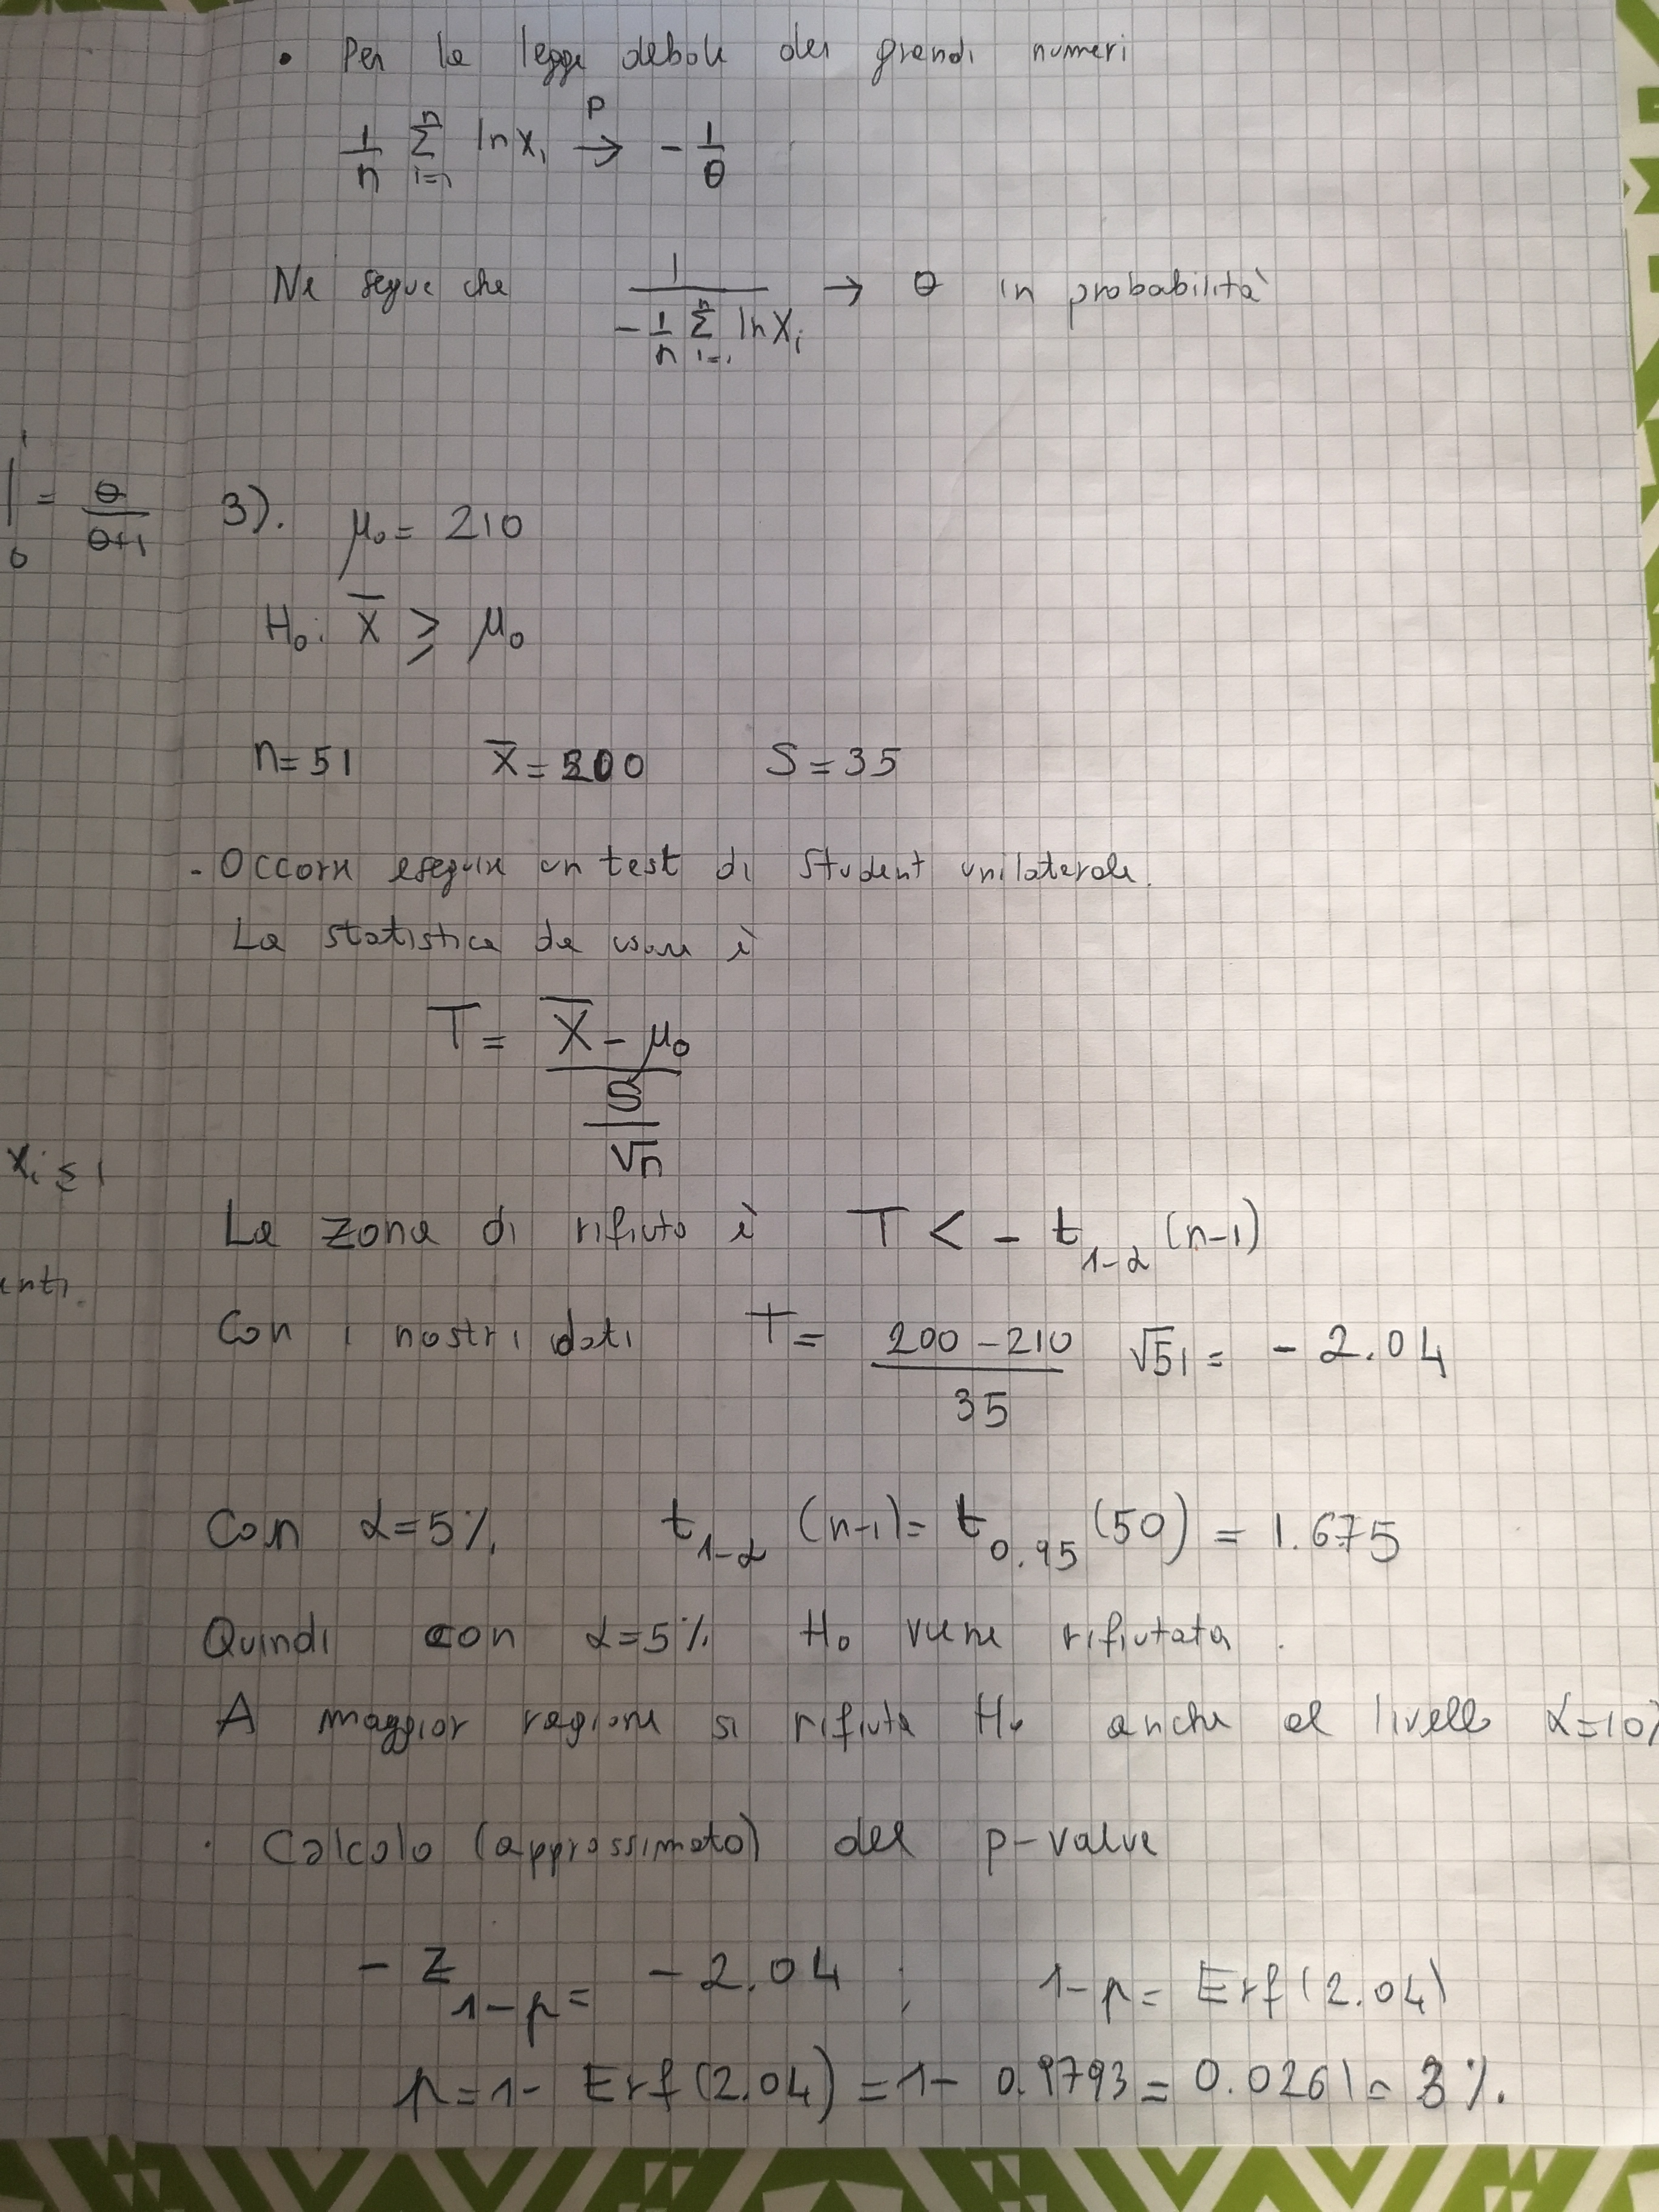 • Per la legge debole dei grandi numeri
1/n Σ_{i=1}^{n} ln X_i →^P - 1/θ
Ne segue che 1/(-1/n Σ_{i=1}^{n} ln X_i) → θ in probabilità
|_0^1 = θ/(θ+1)
3). μ₀ = 210
H₀: X̄ ≥ μ₀
n=51 X̄=200 S=35
- Occorre eseguire un test di Student unilaterale.
La statistica da usare è
T = (X̄ - μ₀)/(S/√n)
X_i ≤ 1
La zona di rifiuto è T < - t_{1-α} (n-1)
enti.
Con i nostri dati T = (200-210)/35 √51 = -2.04
Con α=5% t_{1-α} (n-1) = t_{0.95} (50) = 1.675
Quindi con α=5% H₀ viene rifiutata.
A maggior ragione si rifiuta H₀ anche al livello α=10%
· Calcolo (approssimato) del p-value
- z_{1-p} = -2.04 ; 1-p = Erf(2.04)
p = 1 - Erf(2.04) = 1 - 0.9793 = 0.0261 = 3%.